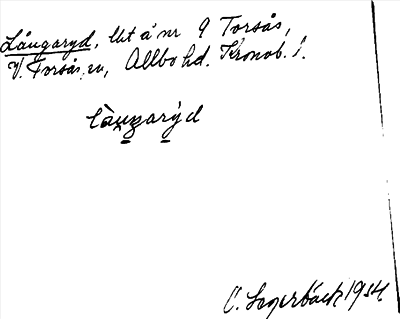 Långaryd, lht å nr 9 Torsås,
V. Torsås sn, Allbo hd. Kronob. l.
làŋgarýd
C. Segerbäck 1934